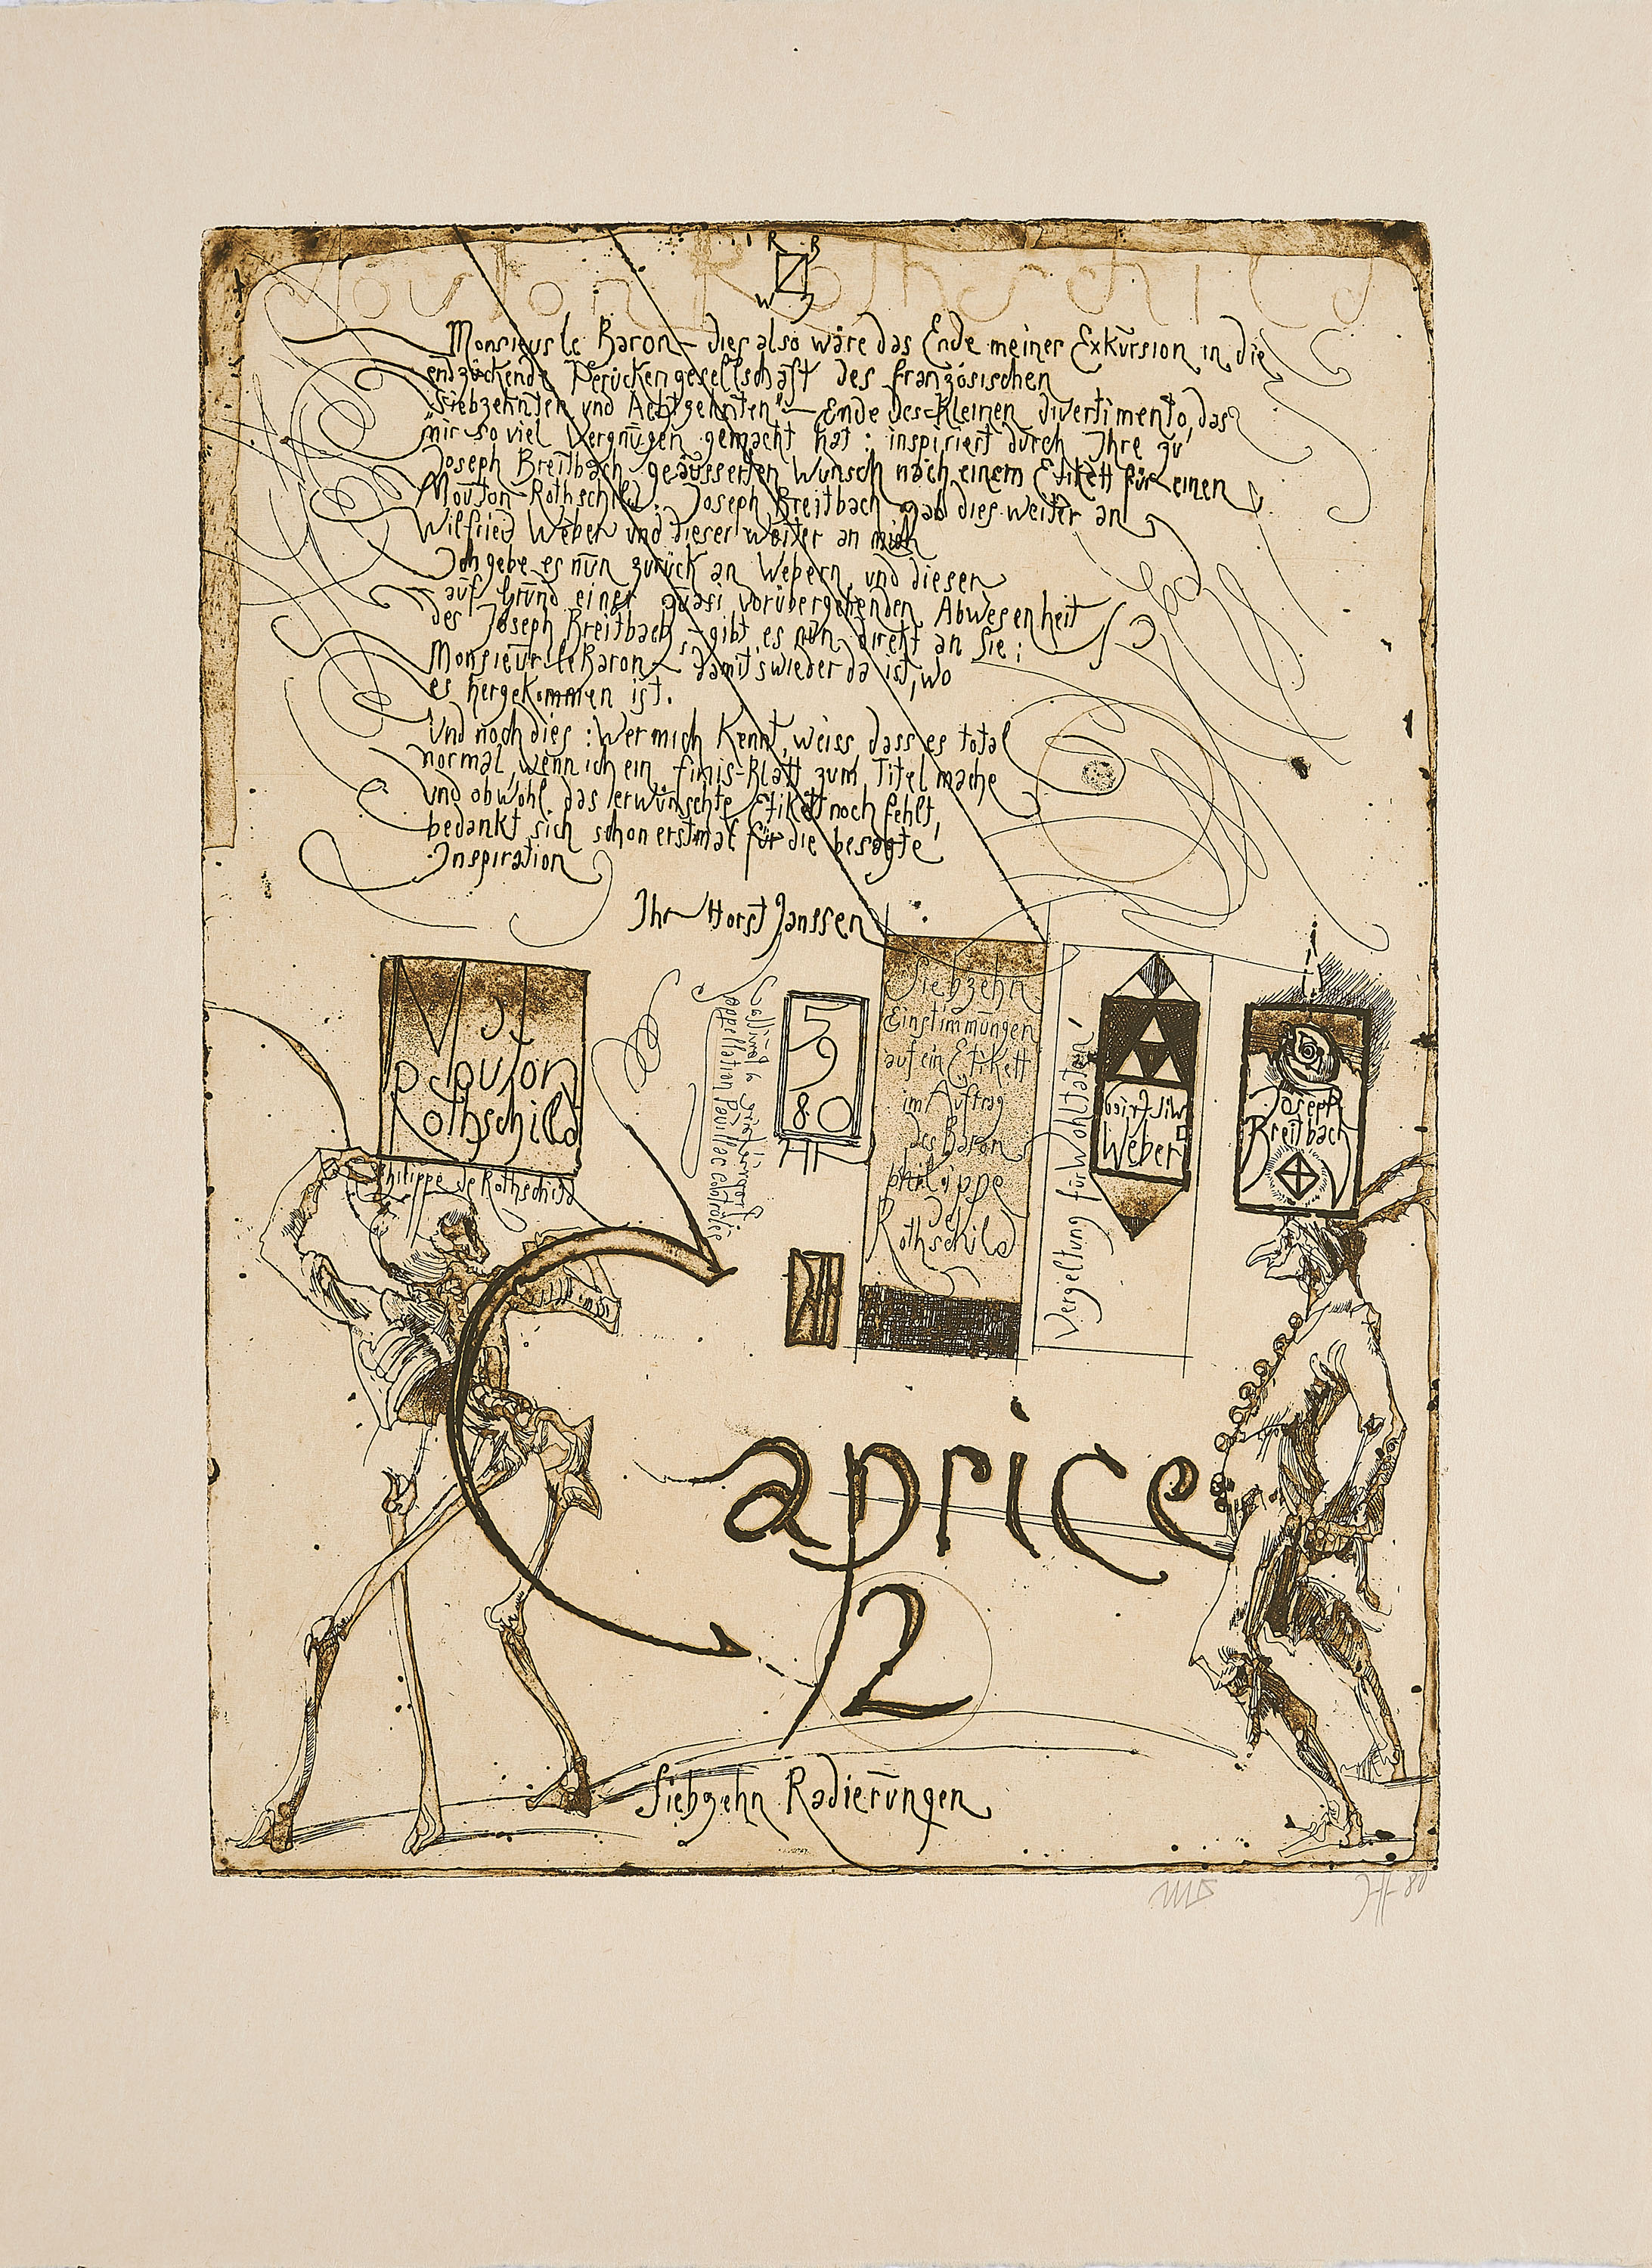 R B
W J
Mouton Rothschild
Monsieur le Baron – dies also wäre das Ende meiner Exkursion in die
entzückende Perückengesellschaft des französischen
"Siebzehnten und Achtzehnten" – Ende des kleinen divertimento, das
mir so viel Vergnügen gemacht hat: inspiriert durch Ihre zu
Joseph Breitbach geäusserten Wunsch nach einem Etikett für einen
Mouton-Rothschild. Joseph Breitbach gab dies weiter an
Wilfried Weber und dieser weiter an mich
Ich gebe es nun zurück an Webern, und dieser
– auf Grund einer quasi vorübergehenden Abwesenheit
des Joseph Breitbach's – gibt es nun direkt an Sie;
Monsieur le Baron – damit's wieder da ist, wo
es hergekommen ist.
Und noch dies: Wer mich Kennt, weiss, dass es total
normal, wenn ich ein finis-Blatt zum Titel mache
und obwohl das erwünschte Etikett noch fehlt,
bedankt sich schon erstmal für die besagte
Inspiration
Ihr Horst Janssen
Mouton
Rothschild
Philippe de Rothschild
appellation Pauillac contrôlée
5
9
80
Siebzehn
Einstimmungen
auf ein Etikett
im Auftrag
des Baron
philippe
de
Rothschild
Vergeltung für Wohltaten!
Wilfried
Weber
Joseph
Breitbach
Caprice
2
Siebzehn Radierungen
JH 80